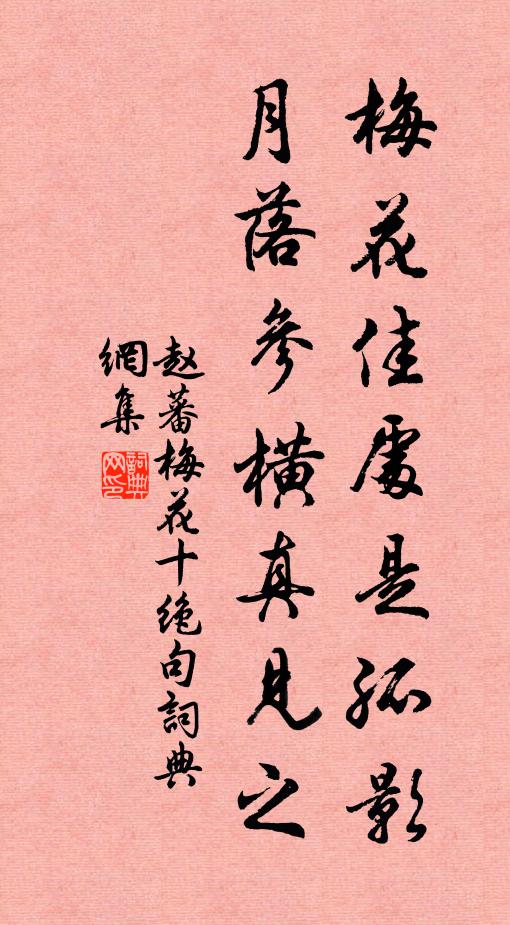 梅花佳處是孤影
月落參橫真見之
赵蕃梅花十绝句詞典
網集
詞典
网印